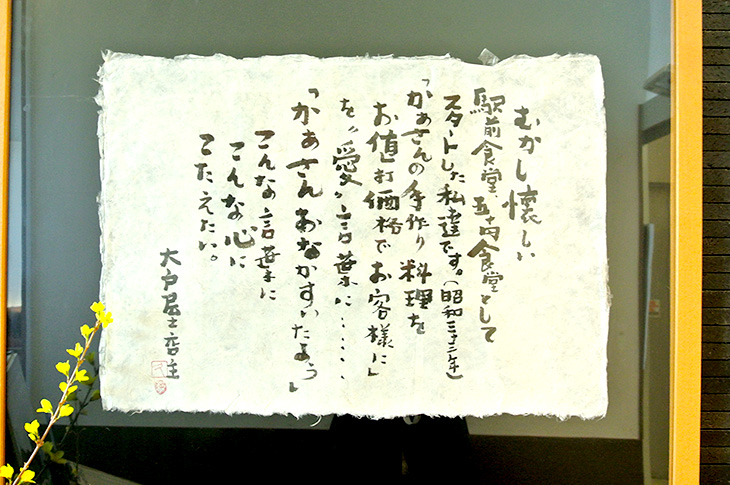 むかし懐しい
駅前食堂、五十円食堂として
スタートした私達です。(昭和三十三年)
「かあさんの手作り料理を
お値打価格でお客様に」
を〝愛〟言葉に‥‥‥
「かあさんおなかすいたよう」
こんな言葉に
こんな心に
こたえたい。
大戸屋主